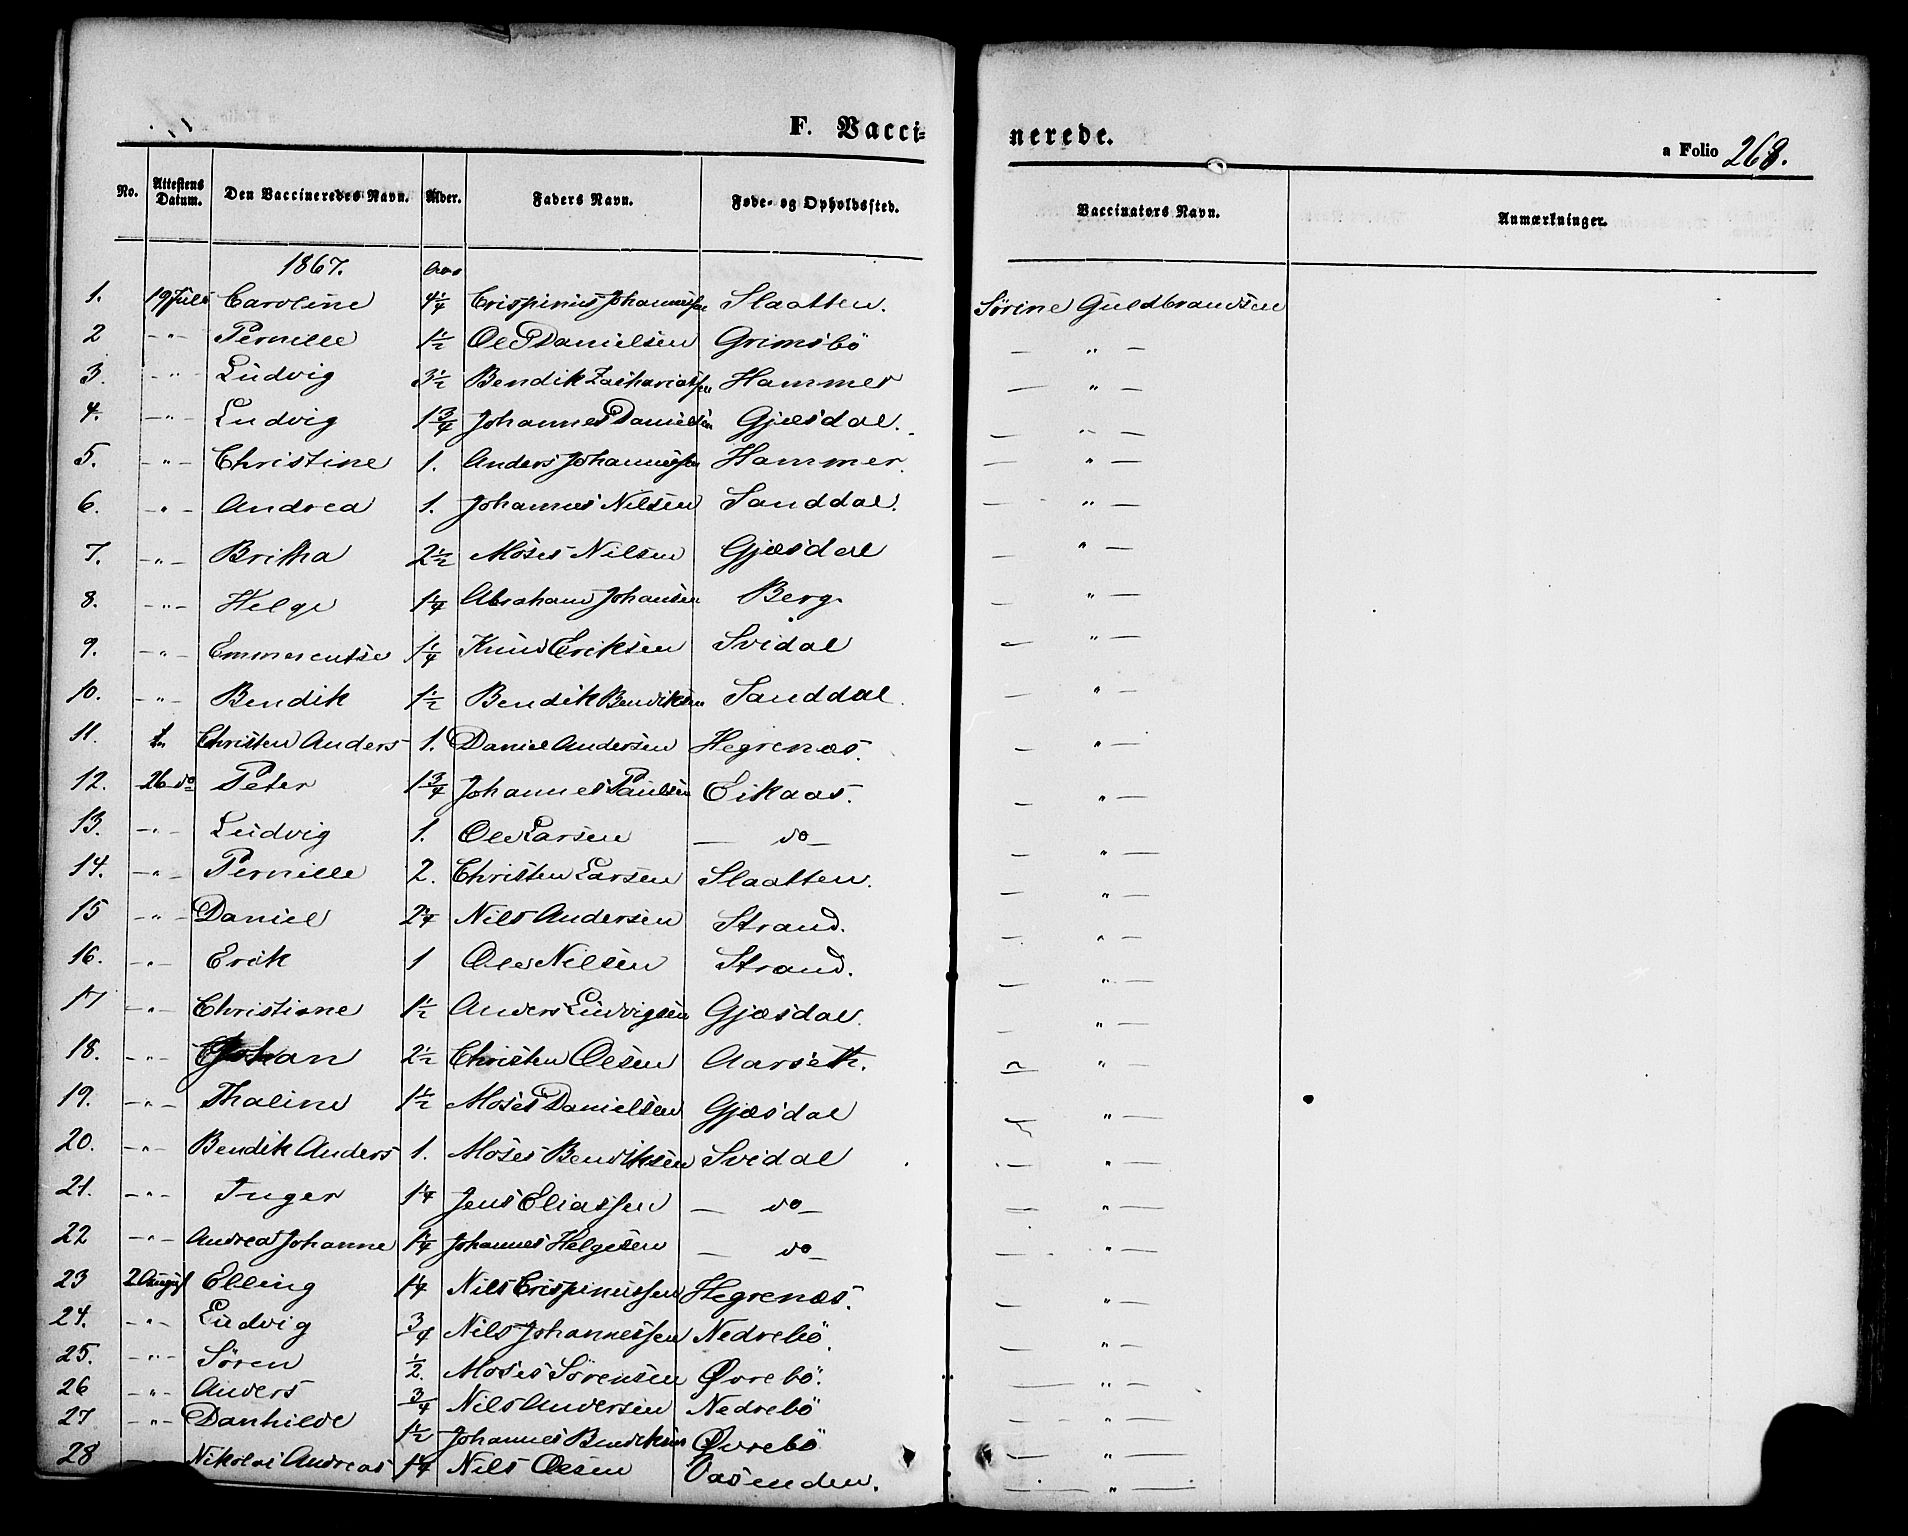 F. Vacci-
nerede.
a Folio 268.
No. Attestens Datum. Den Vaccineredes Navn. Alder. Faders Navn. Føde- og Opholdssted. Vaccinators Navn. Anmærkninger.
1867. Aar
1. 19 Juli Caroline 4 1/4 Crispinus Johannessen Slaatten. Sørine Guldbrandsen
2 -"- Pernille 1 1/2 Ole Danielsen Grimsbö — " —
3. -"- Ludvig 3 1/2 Bendik Zachariassen Hammer — " —
4. -"- Ludvig 1 3/4 Johannes Danielsen Gjæsdal. — " —
5. -"- Christine 1. Anders Johannessen Hammer. — " —
6. -"- Andrea 1. Johannes Nilsen Sanddal. — " —
7. -"- Britha 2 1/2 Moses Nilsen Gjæsdal — " —
8. -"- Helge 1 1/4 Abraham Johansen Berg. — " —
9. -"- Emmerentse 1 1/4 Knud Eriksen Svidal — " —
10. -"- Bendik 1 1/2 Bendik Bendiksen Sanddal. — " —
11. Christen Anders 1. Daniel Andersen Hegrenæs. — " —
12. 26 do Peter 1 3/4 Johannes Paulsen Eikaas. — " —
13. -"- Ludvig 1. Ole Larsen — do — — " —
14. -"- Pernille 2. Christen Larsen Slaatten. — " —
15 -"- Daniel 2 1/4 Nils Andersen Strand. — " —
16. -"- Erik 1 Ole Nilsen Strand. — " —
17 -"- Christiane 1 1/2 Anders Ludvigsen Gjæsdal. — " —
18. -"- Johan 2 1/2 Christen Olsen Aarseth. — " —
19. -"- Thaline 1 1/2 Moses Danielsen Gjæsdal — " —
20. -"- Bendik Anders 1. Moses Bendiksen Svidal — " —
21. -"- Inger 1 1/4 Jens Eliassen — do — — " —
22 -"- Andrea Johanne 1 1/4 Johannes Helgesen — do — — " —
23 2 August Elling 1 1/4 Nils Crispinussen Hegrenæs. — " —
24. -"- Ludvig 3/4 Nils Johannessen Nedrebö. — " —
25. -"- Sören 1/2. Moses Sørensen Øvrebö. — " —
26 -"- Anders 3/4 Nils Andersen Nedrebö — " —
27 -"- Danhilde 1 1/2 Johannes Bendiksen Øvrebö — " —
28 Nikolai Andreas 1 1/4 Nils Olsen Vasenden. — " —